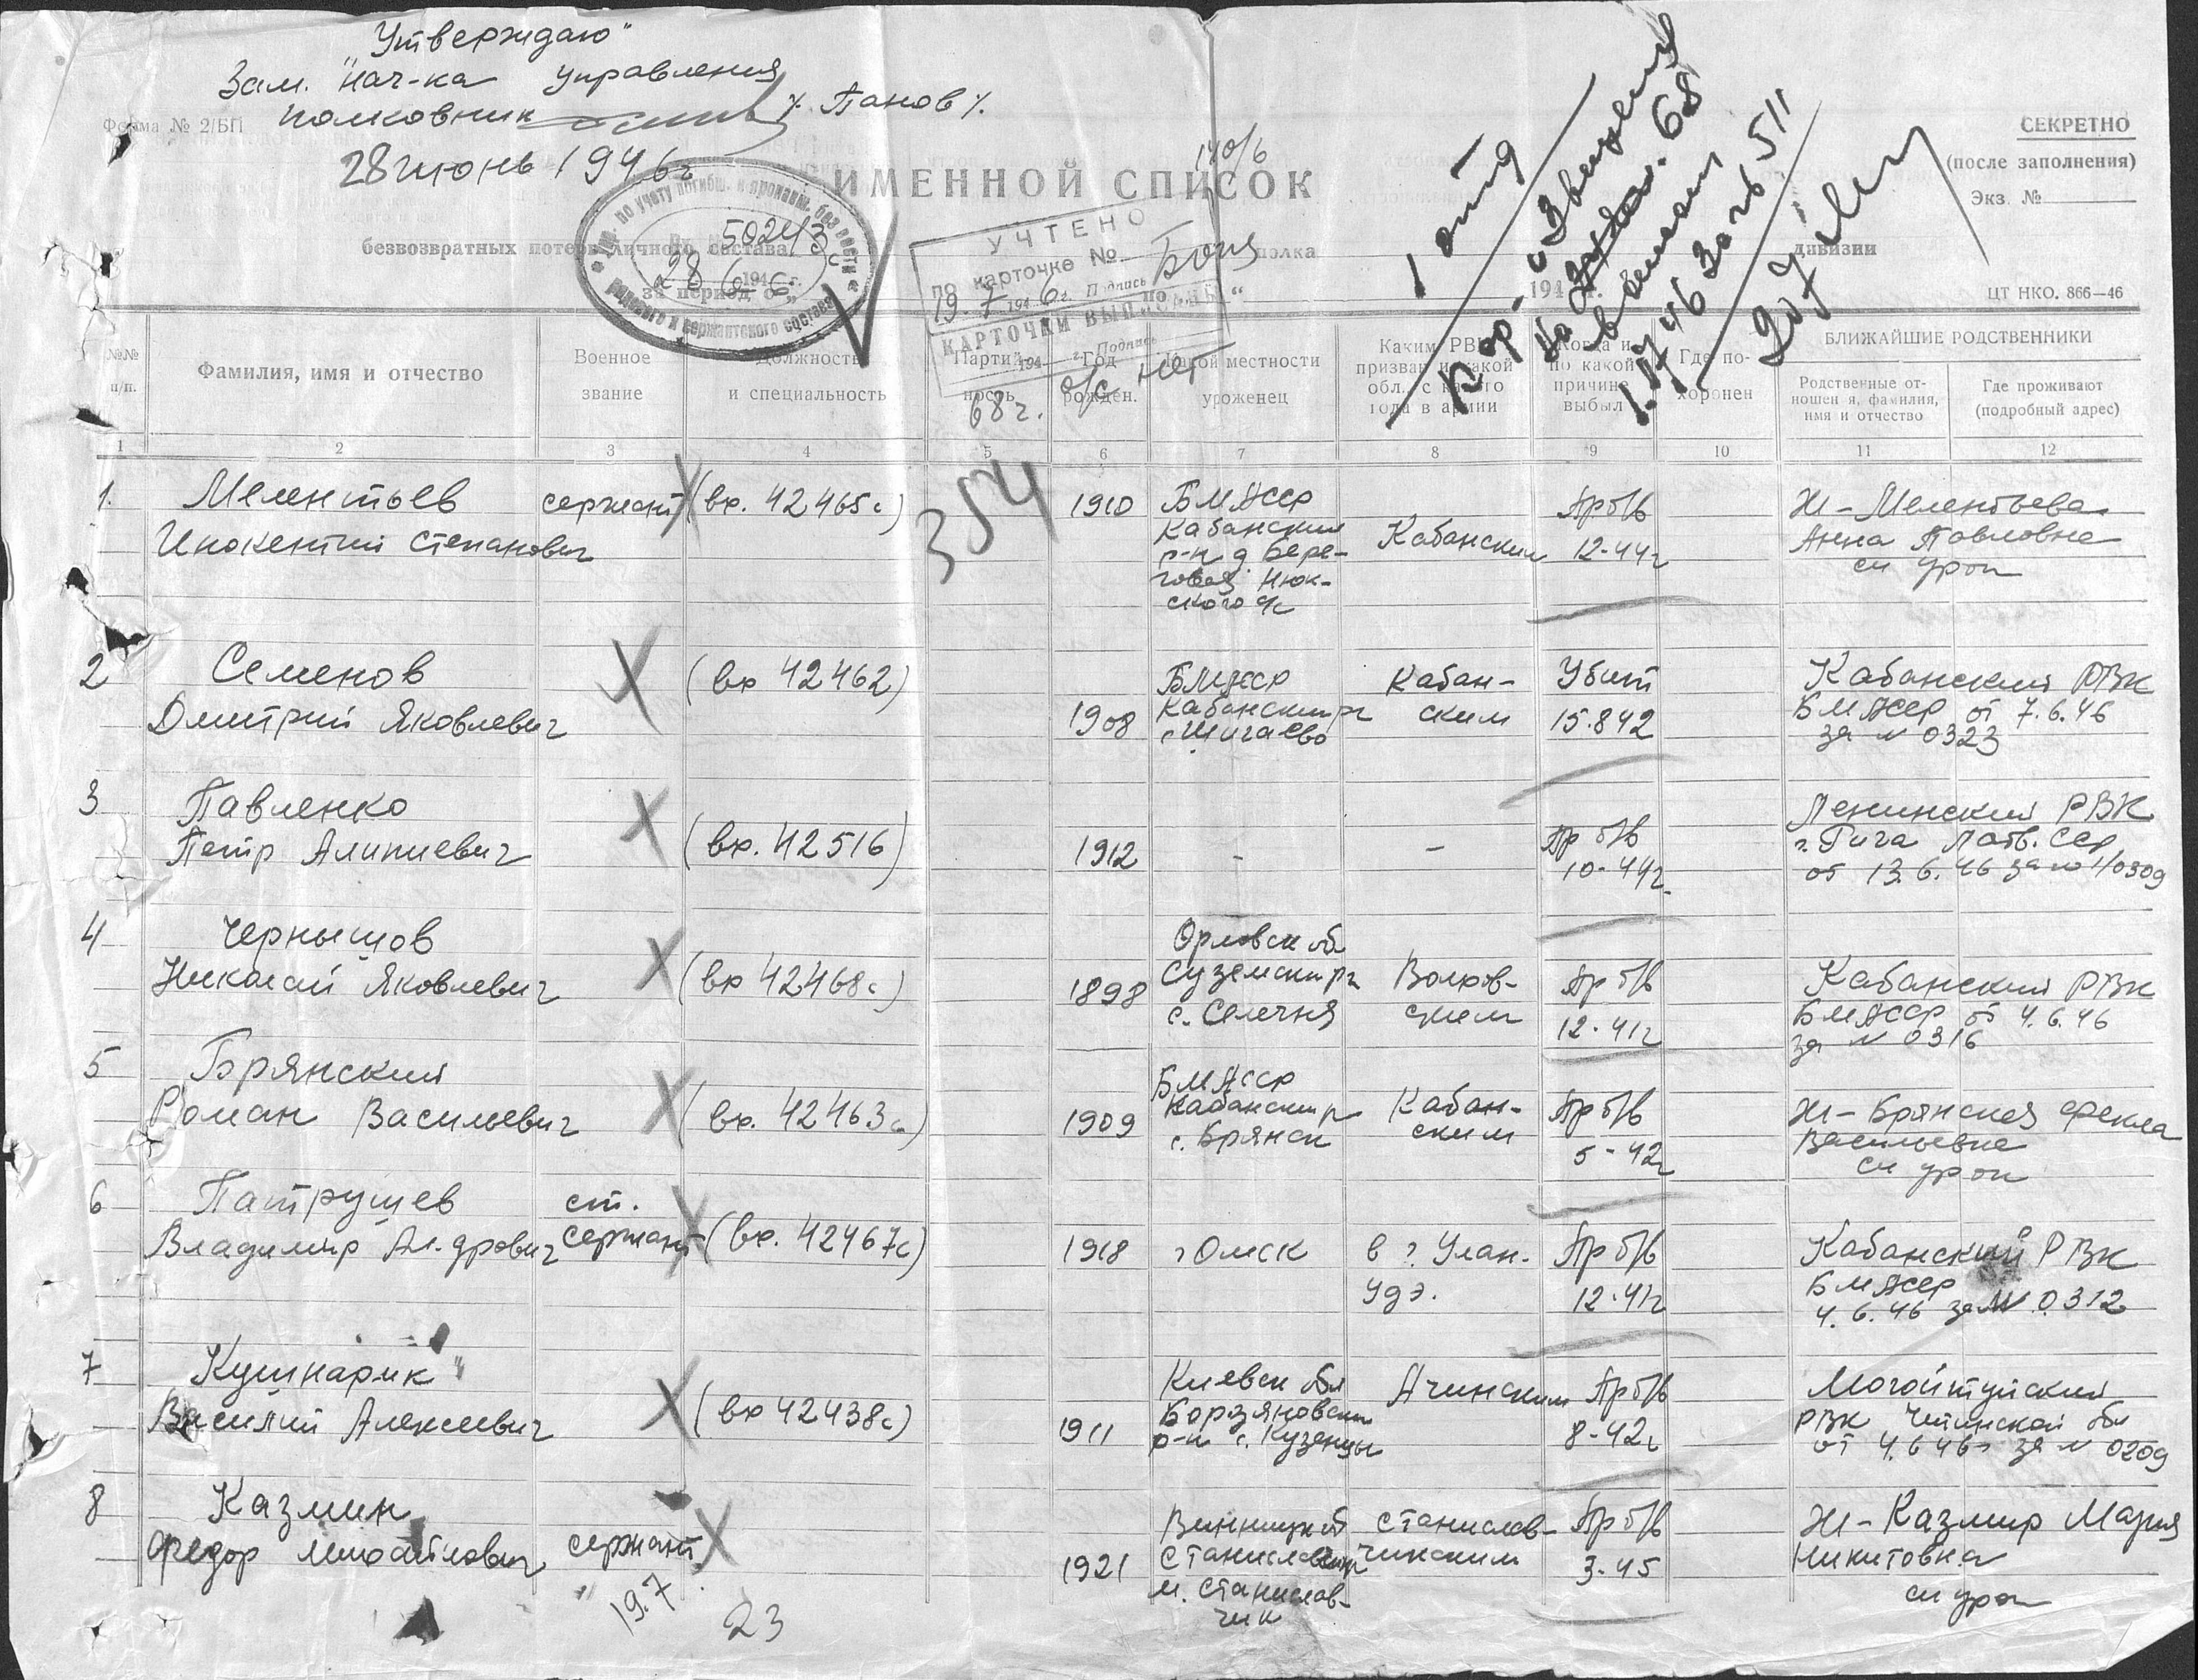 "Утверждаю"
Зам. нач-ка управления
полковник /. Панов /.
28 июнь 1946 г
Форма № 2/БП
СЕКРЕТНО
(после заполнения)
Экз. №
ИМЕННОЙ СПИСОК
безвозвратных потерь личного состава полка дивизии
за период с „ по „ “ 194 г.
ЦТ НКО. 866—46
Упр. по учету погибш. и пропавш. без вести
рядового и сержантского состава
50243с
28 6 1946 г.
УЧТЕНО
по карточке №
19. 7. 1946 г. Подпись
КАРТОЧКИ ВЫПИСАНЫ
194 г. Подпись
68 г. о/с нет
1 отд
в 68
1.7 46
№№ п/п.
Фамилия, имя и отчество
Военное звание
Должность и специальность
Партийность
Год рожден.
Какой местности уроженец
Каким РВК призван и какой обл. с какого года в армии
Когда и по какой причине выбыл
Где похоронен
БЛИЖАЙШИЕ РОДСТВЕННИКИ
Родственные отношения, фамилия, имя и отчество
Где проживают (подробный адрес)
1 2 3 4 5 6 7 8 9 10 11 12
354
1. Мелентьев сержант (вх. 42465с) 1910 БМАССР Пр б/в Ж - Мелентьева
Инокентий Степанович Кабанский Кабанским 12-44г Анна Павловна
р-н д Бере-
говая Нюк-
ского с/с
2 Семенов (вх 42462) БМАССР Кабан- Убит Кабанский РВК
Дмитрий Яковлевич 1908 Кабанский р-н ским 15.8 42 БМАССР от 7.6.46
с. Шигаево за № 0323
3 Павленко Ленинский РВК
Петр Алипиевич (вх. 42516) 1912 - - Пр б/в г. Рига Латв. ССР
10-44г. от 13.6.46 за № 1/0309
4 Чернышов Орловск обл
Николай Яковлевич (вх 42468с) 1898 Суземский р-н Волхов- Пр б/в Кабанский РВК
с. Селечня ским 12-41г БМАССР от 4.6.46
за № 0316
5 Брянский БМАССР
Роман Васильевич (вх. 42463с) 1909 Кабанский р Кабан- Пр б/в Ж - Брянская Фекла
с. Брянск ским 5-42г Васильевна
6 Патрушев ст.
Владимир Ал-дрович сержант (вх. 42467с) 1918 г Омск в г. Улан- Пр б/в Кабанский РВК
Удэ. 12.41г БМАССР
4.6.46 за № 0312
7 Кушнарик Киевск обл Ачинским Пр б/в Могойтуйский
Василий Алексеевич (вх 42438с) 1911 р-н с. Кузенцы 8-42г РВК Читинской обл
от 4.6 46г за № 0209
8 Казмин Винницкой Станислав- Пр б/в Ж - Казмир Мария
Федор Михайлович сержант 1921 чикским 3-45 Никитовна
м. Станислав-
чик
19.7
23